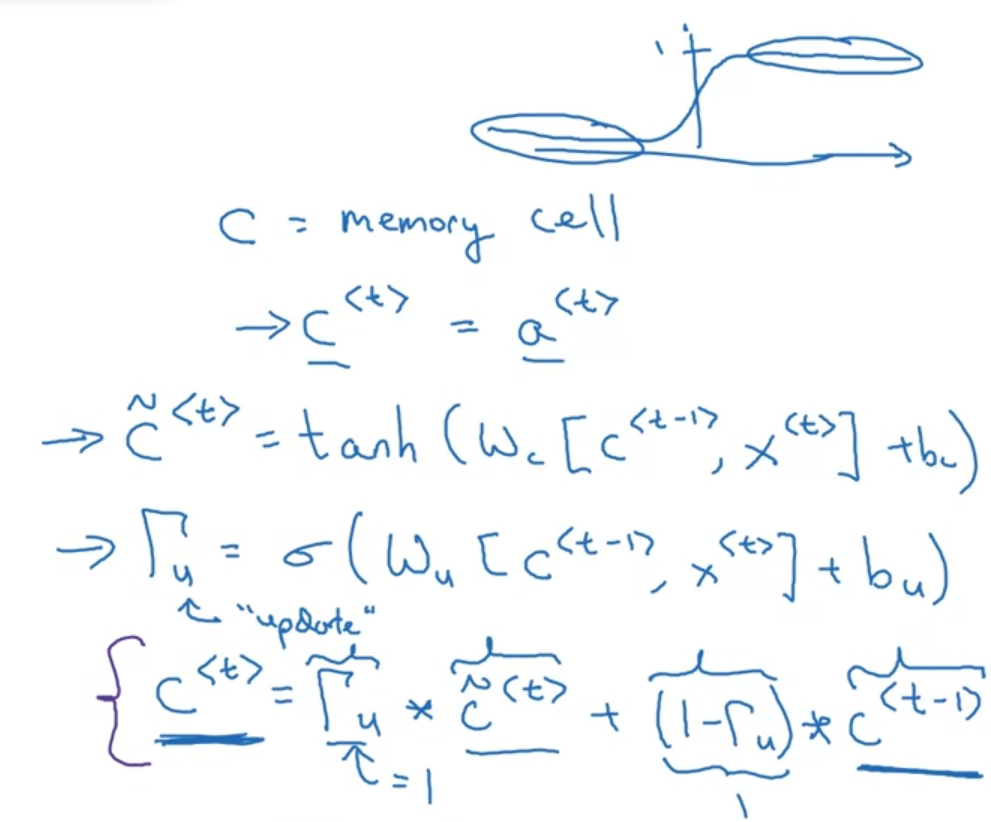 1
C = memory cell
→ C^<t> = a^<t>
→ C̃^<t> = tanh (W_c [c^<t-1>, x^<t>] + b_c)
→ Γ_u = σ (W_u [c^<t-1>, x^<t>] + b_u)
"update"
C^<t> = Γ_u * C̃^<t> + (1-Γ_u) * C^<t-1>
= 1
1